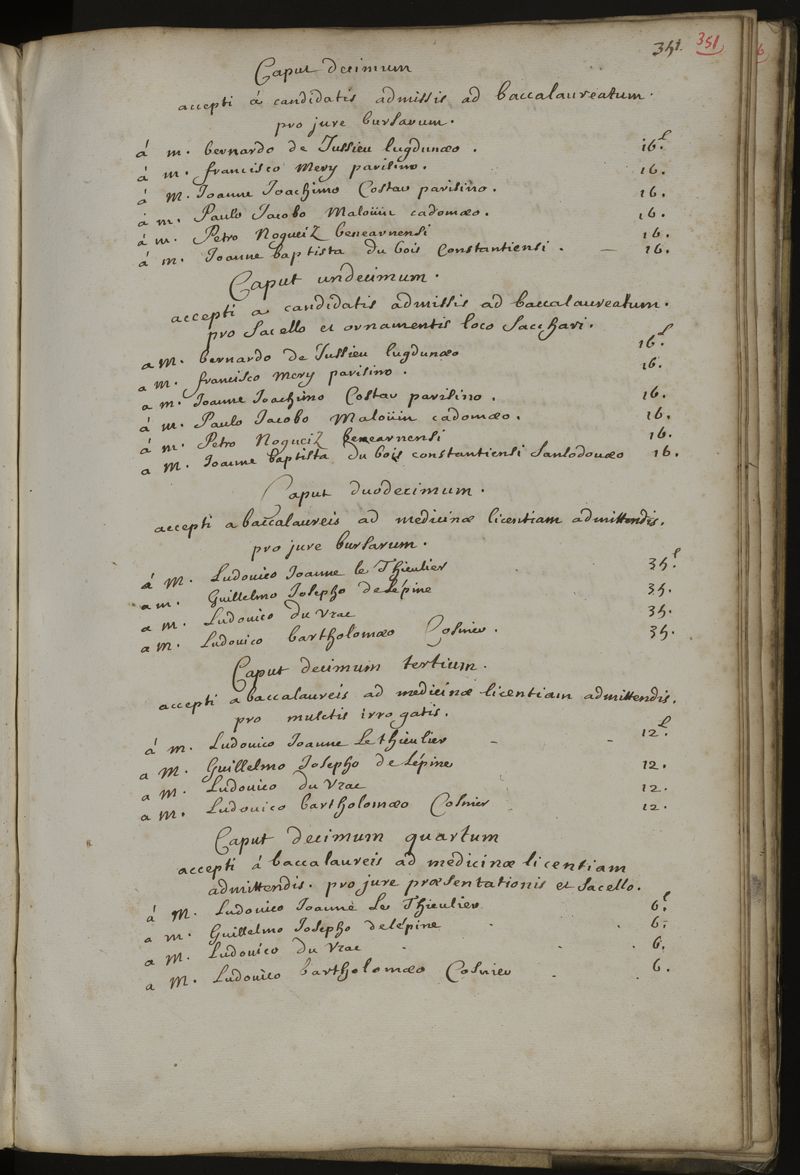 351. 351
Caput decimum
accepti á candidatis admissis ad baccalaureatum.
pro jure bursarum.
á m. bernardo de Jussieu lugdunæo . 16.ł
á m. francisco Mery parisino. 16.
á M. Joanne Joachimo Costau parisino. 16.
á m. Paulo Jacobo Maloüin cadomæo. 16.
á m. Petro Nogueiz benearnensi 16.
á m. Joanne baptista du bois Constantiensi. — 16.
Caput undecimum.
accepti a candidatis admissis ad baccalaureatum.
pro sacello et ornamentis loco sacchari.
a M. bernardo de Jussieu lugdunæo 16.ł
a m. francisco mery parisino. 16.
a m. Joanne Joachimo Costau parisino. 16.
á m. Paulo Jacobo Maloüin cadomæo. 16.
á m. Petro Nogueiz benearnensi 16.
a M. Joanne baptista du bois constantiensi sanlodouæo 16.
Caput duodecimum.
accepti a baccalaureis ad medicinæ licentiam admittendis.
pro jure bursarum.
á M. Ludovico Joanne le Thieulier 35.ł
a m. Guillelmo Josepho de Lépine 35.
a M. Ludovico du Vrac 35.
a M. Ludovico bartholomæo Cosnier. 35.
Caput decimum tertium.
accepti a baccalaureis ad medicinæ licentiam admittendis.
pro mulctis irrogatis.
á m. Ludovico Joanne Le thieulier - - 12.ł
a M. Guillelmo Josepho de Lépine 12.
a M. Ludovico du Vrac 12.
a M. Ludovico bartholomæo Cosnier 12.
Caput decimum quartum
accepti á baccalaureis ad medicinæ licentiam
admittendis. pro jure præsentationis et sacello.
á M. Ludovico Joanne Le Thieulier 6.ł
a m. Guillelmo Josepho delépine 6.
a M. Ludovico du Vrac 6.
a M. Ludovico bartholomæo Cosnier 6.